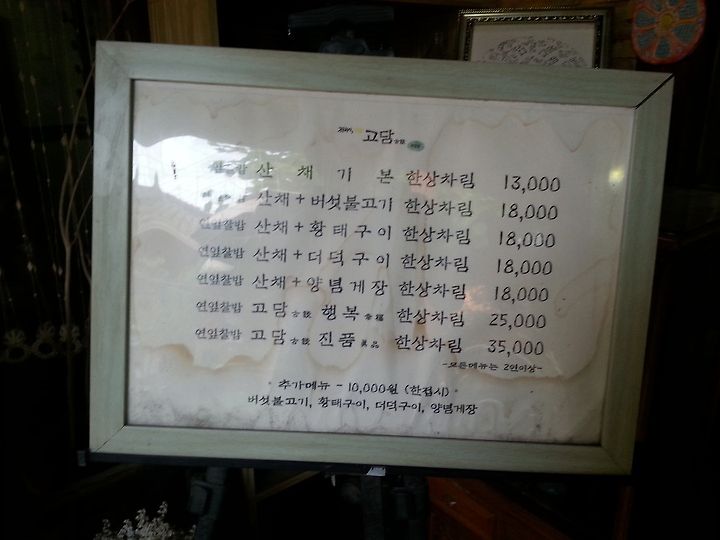 고담
산채기본 한상차림 13,000
산채+버섯불고기 한상차림 18,000
연잎찰밥 산채+황태구이 한상차림 18,000
연잎찰밥 산채+더덕구이 한상차림 18,000
연잎찰밥 산채+양념게장 한상차림 18,000
연잎찰밥 고담 행복 幸福 한상차림 25,000
연잎찰밥 고담 진품 眞品 한상차림 35,000
-모든메뉴는 2인이상-
• 추가메뉴 - 10,000원 (한접시) •
버섯불고기, 황태구이, 더덕구이, 양념게장